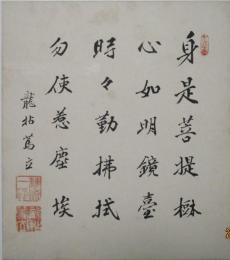 身是菩提樹
心如明鏡臺
時々勤拂拭
勿使惹塵埃